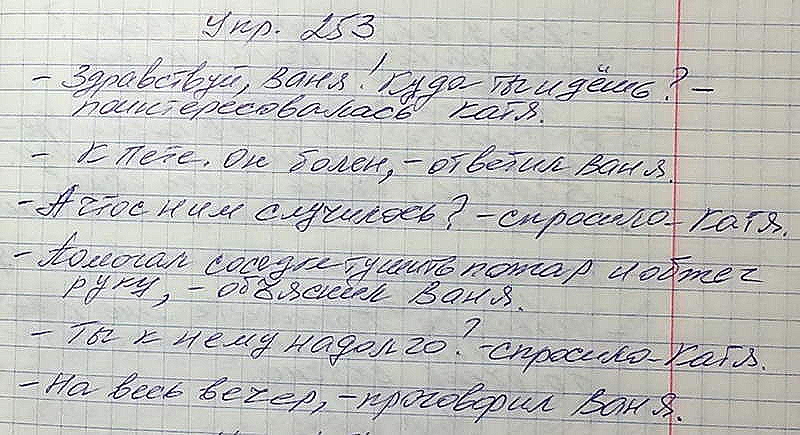 Упр. 253
- Здравствуй, Ваня! Куда ты идёшь? -
поинтересовалась Катя.
- К Пете. Он болен, - ответил Ваня.
- А что с ним случилось? - спросила Катя.
- Помогал соседке тушить пожар и обжег
руку, - объяснил Ваня.
- Ты к нему надолго? - спросила Катя.
- На весь вечер, - проговорил Ваня.